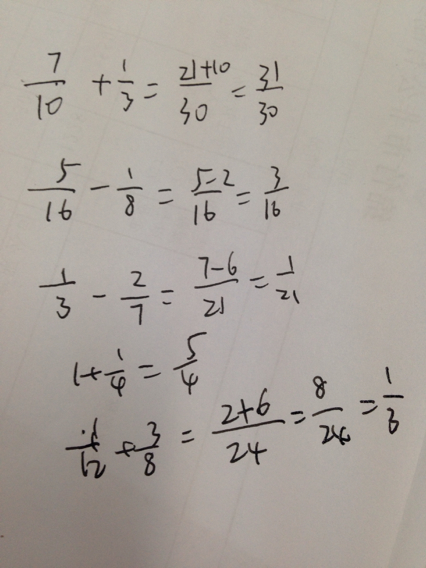 7/10 + 1/3 = (21+10)/30 = 31/30
5/16 - 1/8 = (5-2)/16 = 3/16
1/3 - 2/7 = (7-6)/21 = 1/21
1 + 1/4 = 5/4
1/12 + 3/8 = (2+6)/24 = 8/24 = 1/3